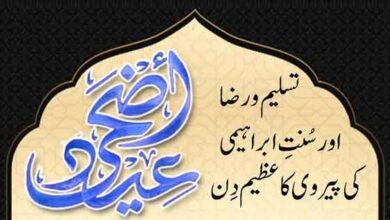 عید اضحٰی
تسلیم و رضا
اور سُنتِ ابراہیمی
کی پیروی کا عظیم دِن